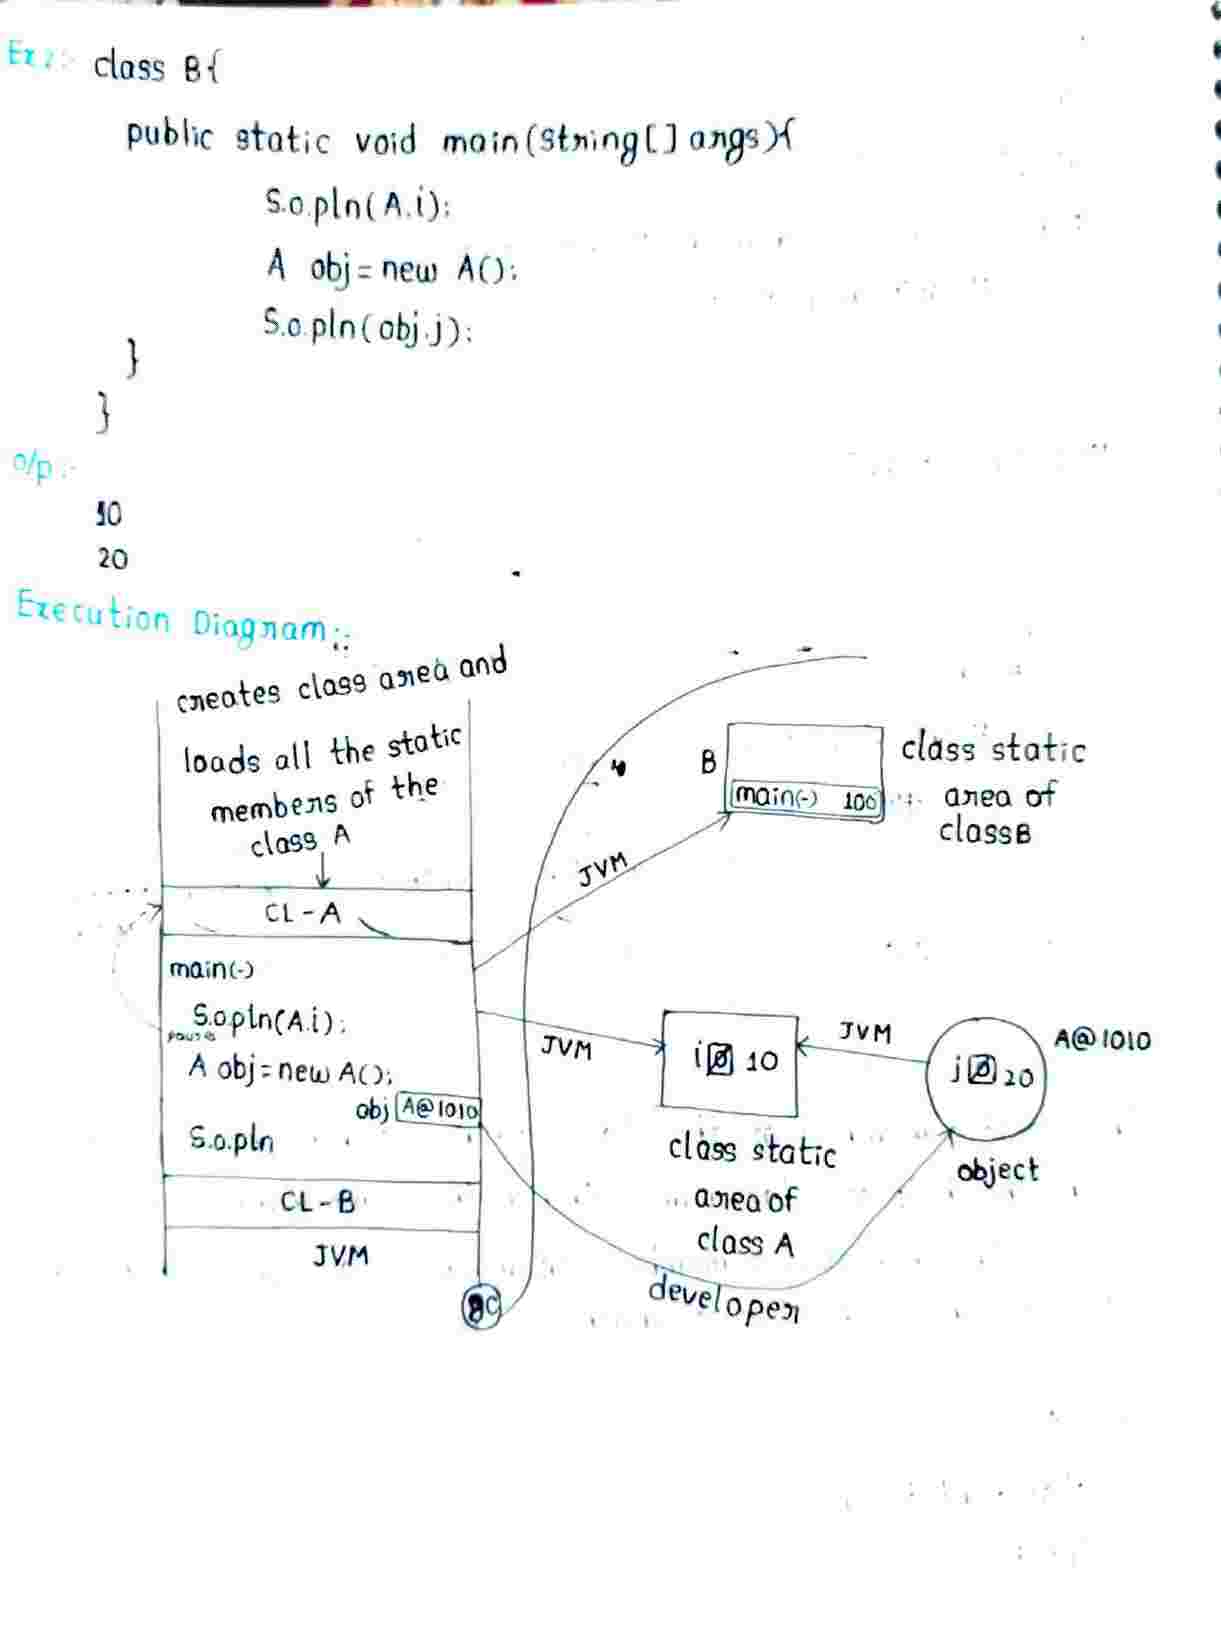 Ex2:-
class B{
public static void main(String[] args){
S.o.pln(A.i);
A obj = new A();
S.o.pln(obj.j);
}
}
o/p :-
10
20
Execution Diagram::
creates class area and
loads all the static
members of the
class A
CL-A
main(-)
S.o.pln(A.i);
pause
A obj = new A();
obj A@1010
S.o.pln
CL-B
JVM
B
main(-) 100
class static
area of
class B
JVM
JVM
i 0 10
class static
area of
class A
JVM
j 0 20
A@1010
object
developer